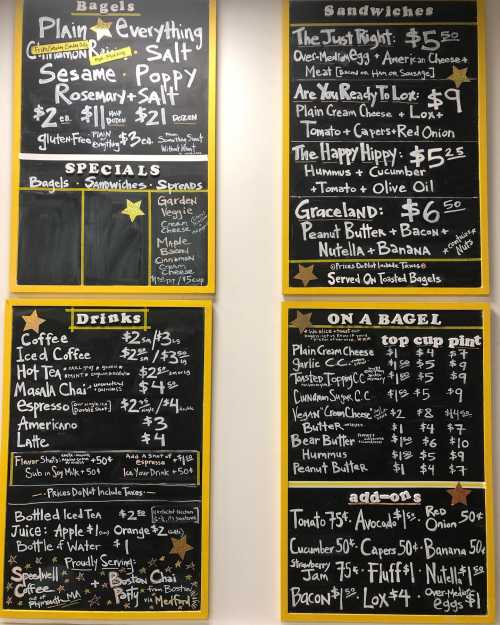 Bagels
Plain everything
Cinnamon Raisin Salt
Sesame · Poppy
Rosemary + Salt
$2 ea. $11 HALF DOZEN $21 DOZEN
gluten Free PLAIN or everything $3 ea.
SPECIALS
Bagels · Sandwiches · Spreads
Garden
Veggie
Cream
Cheese
Maple
Bacon
Cinnamon
Cream
Cheese
Sandwiches
The Just Right: $5 50
Over-Medium egg + American Cheese +
Meat [Bacon or Ham or Sausage]
Are You Ready To Lox: $9
Plain Cream Cheese + Lox +
Tomato + Capers + Red Onion
The Happy Hippy: $5 25
Hummus + Cucumber
+ Tomato + Olive Oil
Graceland: $6 50
Peanut Butter + Bacon +
Nutella + Banana * contains Nuts
Prices Do Not Include Taxes
Served On Toasted Bagels
Drinks
Coffee $2 sm / $3 LG
Iced Coffee
Hot Tea
Masala Chai $4 50
espresso
Americano $3
Latte $4
Flavor Shots: +50¢ Add A Shot of espresso
Sub in Soy Milk +50¢ Ice Your Drink +50¢
- Prices Do Not Include Taxes -
Bottled Iced Tea $2 50
Juice: Apple $1 Orange $2
Bottle of Water $1
Proudly Serving:
Speedwell Coffee out of Plymouth, MA + Boston Chai Party from Boston via Medford
ON A BAGEL
top cup pint
Plain Cream Cheese $1 $4 $7
Garlic C.C. $1 50 $5 $9
Toasted Topping C.C. $1 50 $5 $9
Cinnamon Sugar C.C. $1 50 $5 $9
Vegan "Cream Cheese" $2 $8
Butter $1 $4 $7
Bear Butter $6 $10
Hummus $5 $9
Peanut Butter $1 $4 $7
add-ons
Tomato 75¢ · Avocado · Red Onion 50¢
Cucumber 50¢ · Capers 50¢ · Banana 50¢
Strawberry Jam 75¢ · Fluff $1 · Nutella
Bacon · Lox $4 · Over-Medium eggs $1